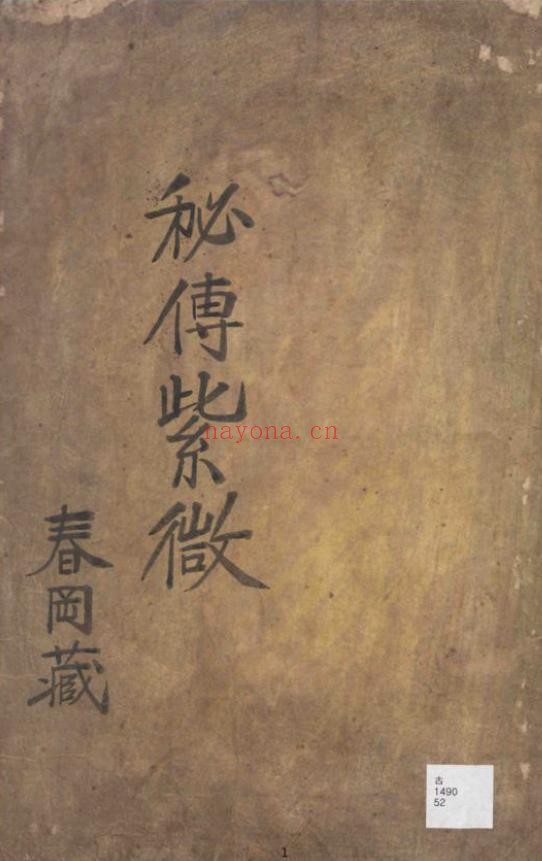 秘傳紫微
春岡藏
nayona.cn
古
1490
52
1